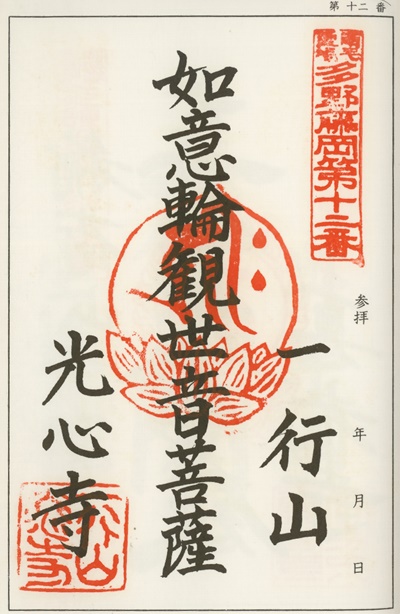 第十二番
多野藤岡第十二番
参拝 年 月 日
一行山
如意輪観世音菩薩
光心寺